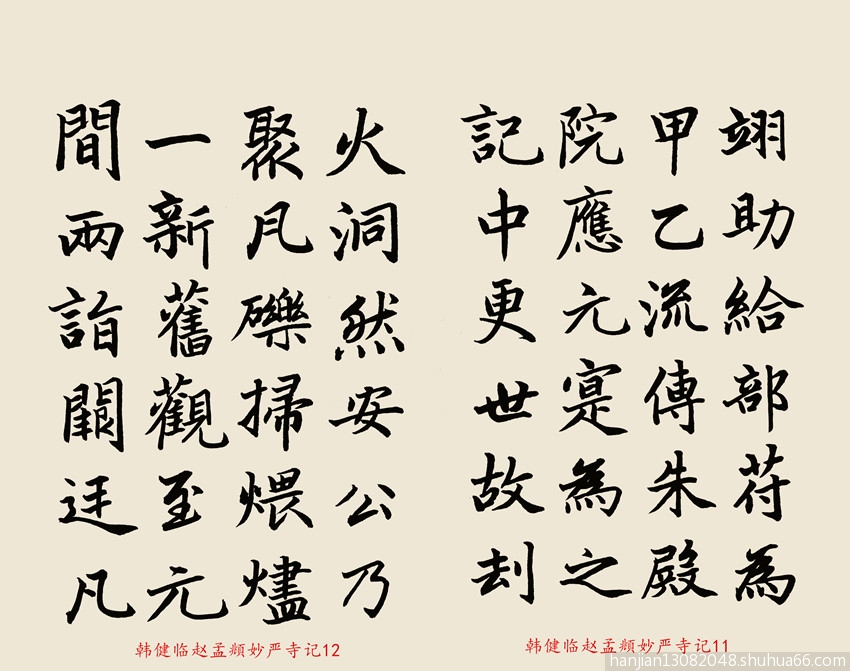 翊助給部苻為
甲乙流傳朱殿
院應元寔為之
記中更世故刦
韩健临赵孟頫妙严寺记11
火洞然安公乃
聚瓦礫掃煨燼
一新舊觀至元
間兩詣闕廷凡
韩健临赵孟頫妙严寺记12
hanjian13082048.shuhua66.com